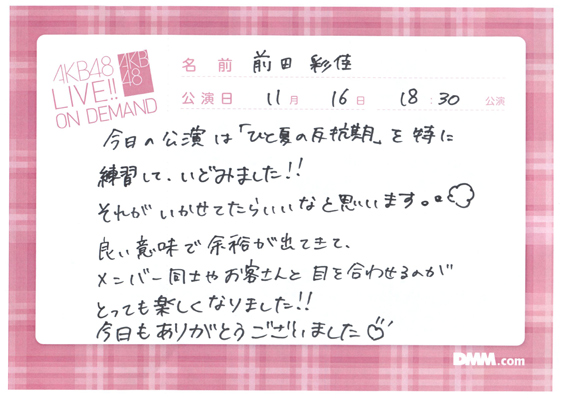 AKB48
LIVE!!
ON DEMAND
AKB
48
名前 前田 彩佳
公演日 11月 16日 18:30 公演
今日の公演は「ひと夏の反抗期」を特に
練習して、いどみました!!
それがいかせてたらいいなと思います。
良い意味で余裕が出てきて、
メンバー同士やお客さんと目を合わせるのが
とっても楽しくなりました!!
今日もありがとうございました
DMM.com